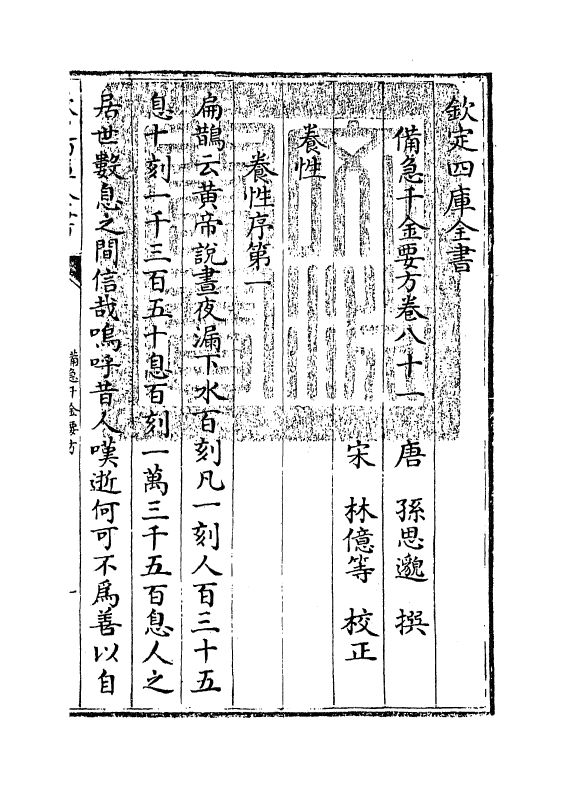 欽定四庫全書
備急千金要方卷八十一
唐 孫思邈 撰
宋 林億等 校正
養性
養性序第一
扁鵲云黄帝說晝夜漏下水百刻凡一刻人百三十五
息十刻一千三百五十息百刻一萬三千五百息人之
居世數息之間信哉嗚呼昔人嘆逝何可不爲善以自
備急千金要方
一